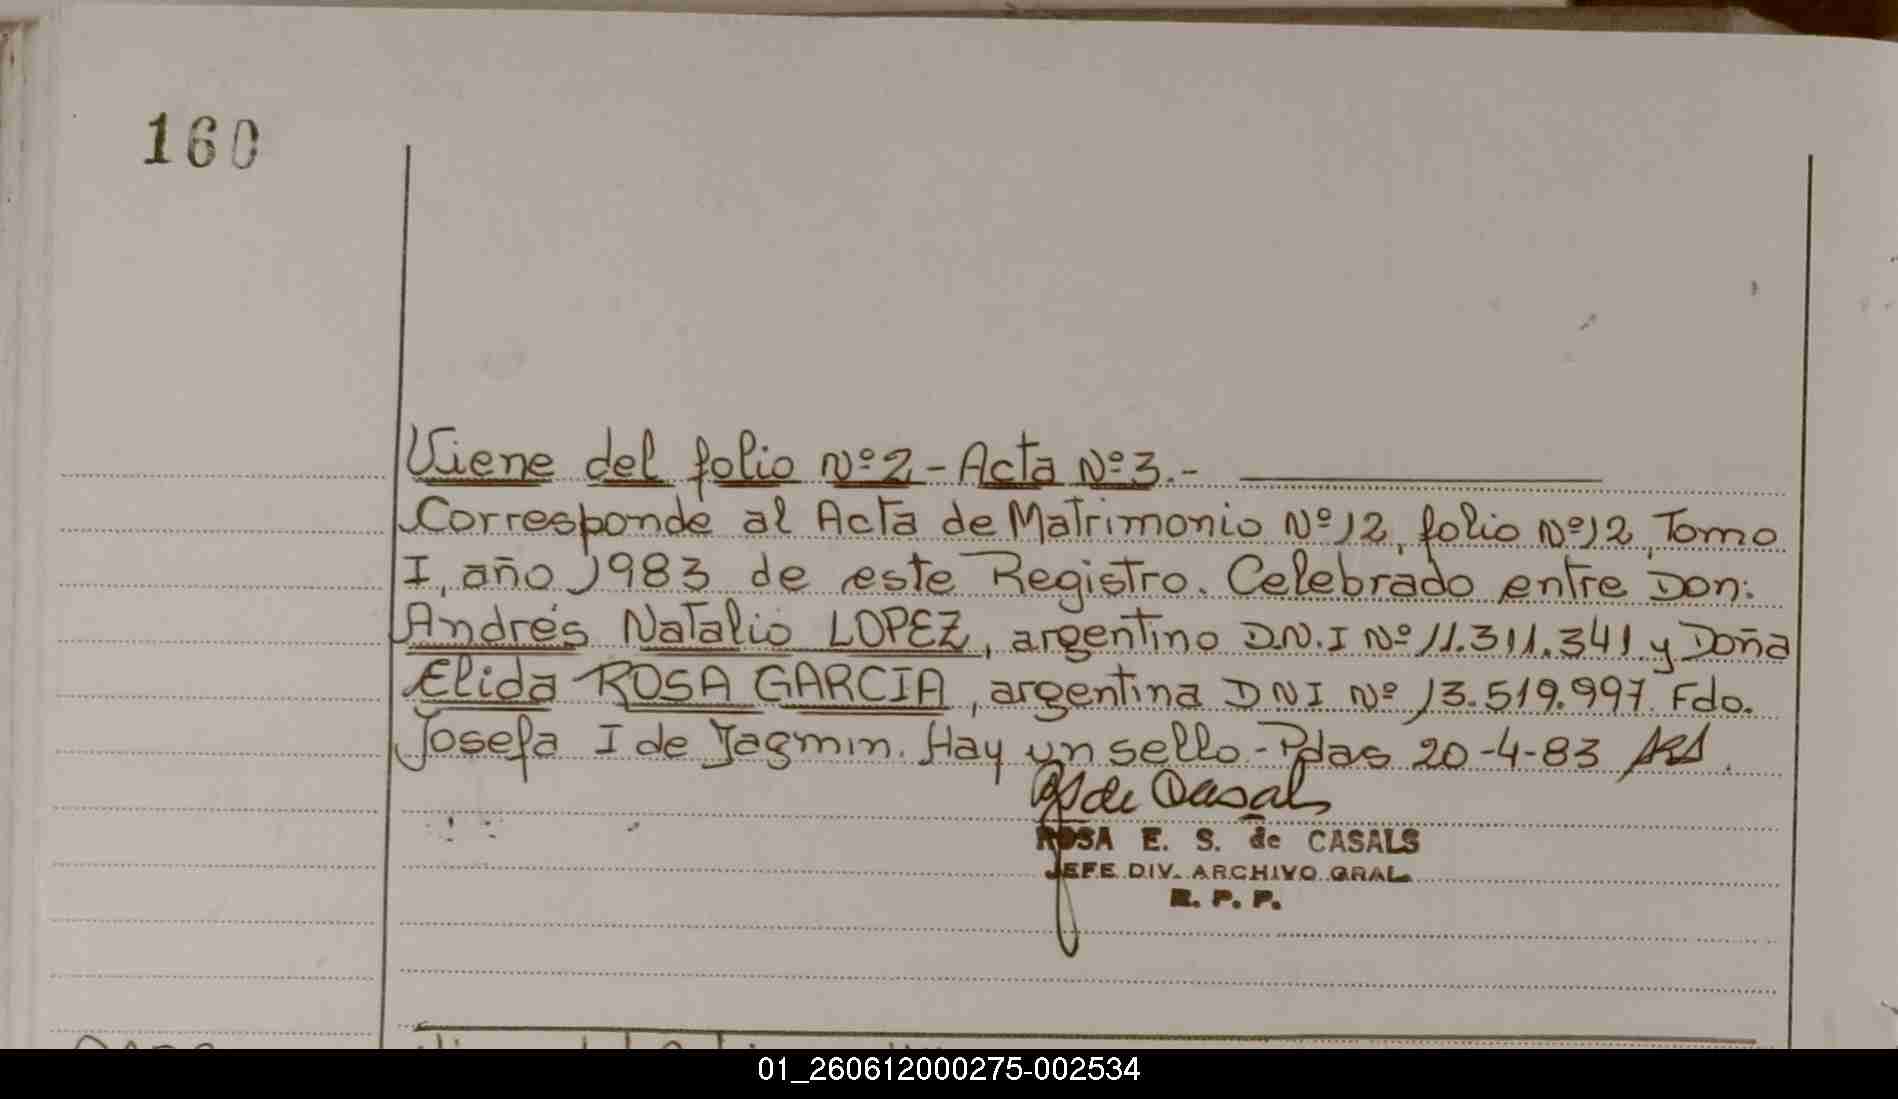 160
Viene del folio Nº 2 - Acta Nº 3. -
Corresponde al Acta de Matrimonio Nº 12, folio Nº 12, Tomo
I, año 1983 de este Registro. Celebrado entre Don:
Andrés Natalio LOPEZ, argentino D.N.I Nº 11.311.341 y Doña
Elida ROSA GARCIA, argentina DNI Nº 13.519.997. Fdo.
Josefa I de Jasmin. Hay un sello - Pdas 20-4-83
de Casals
ROSA E. S. de CASALS
JEFE DIV. ARCHIVO GRAL
R. P. P.
01_260612000275-002534